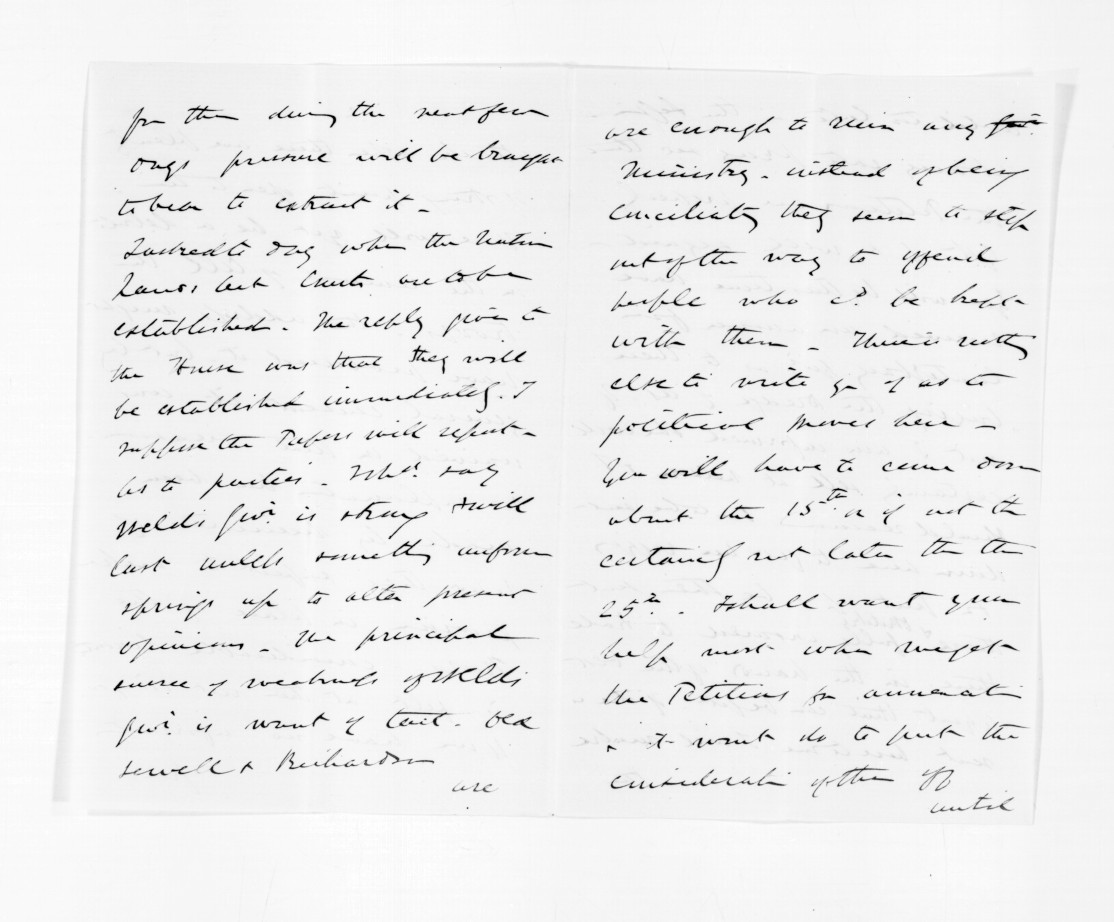 for them during the next few
days pressure will be brought
to bear to extract it –
I asked to day when the Native
Lands act Courts are to be
established – The reply given to
the House was that they will
be established immediately. I
suppose the Papers will report –
As to parties – I shd. say
Welds Govt. is strong & will
last unless something unforseen
springs up to alter present
opinions – The principal
source of weakness of Welds
Govt. is want of tact. Old
Sewell & Richardson
are
are enough to ruin any Govt.
Ministry – instead of being
conciliating they seem to step
out of the way to offend
people who cd. be kept
with them – There is nothing
else to write you of as to
political moves here –
You will have to come down
about the 15th. or if not the
certainly not later than the
25th. – I shall want your
help most when we get
the Petitions for annexation
& it wont do to put the
consideration of them off
until